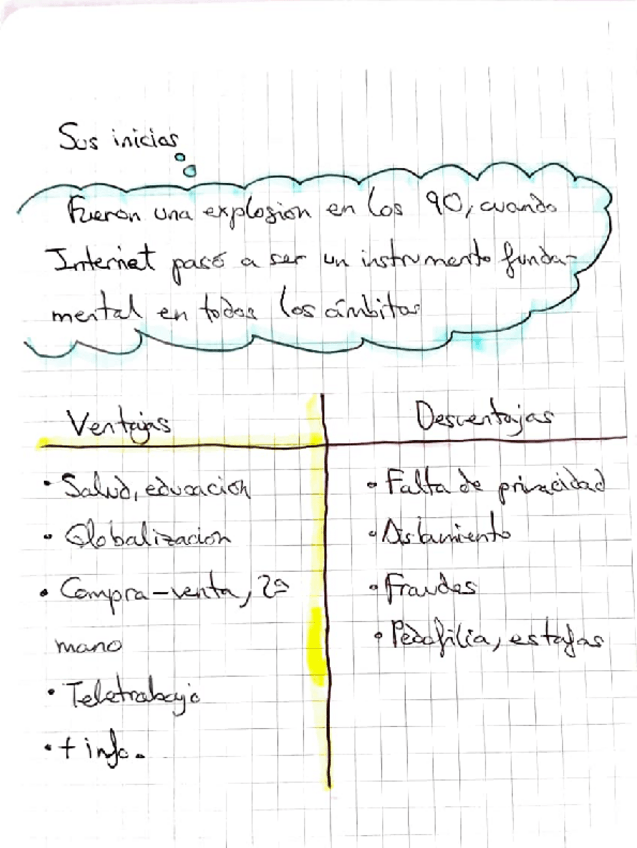 Sus inicias
Fueron una explosion en los 90, cuando
Internet pasó a ser un instrumento funda-
mental en todos los ámbitos
Ventajas
Desventajas
• Salud, educación
• Globalizacion
• Compra-venta, 2ª
mano
• Teletrabajo
• + info.
• Falta de privacidad
• Aislamiento
• Fraudes
• Pedofilia, estafas